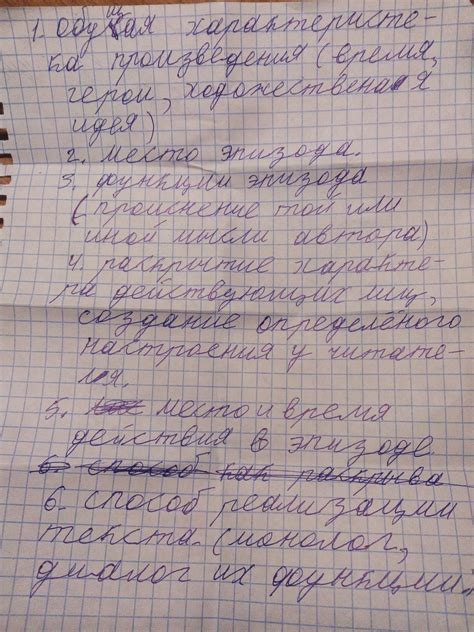 1. Общая характеристе-
ка произведения (время,
герои, ходожественная
идея)
2. место эпизода.
3. функции эпизода
(прояснение той или
иной мысли автора)
4. раскрытие характе-
ра действующих лиц,
создание определёного
настроения у читате-
ля.
5. место и время
действия в эпизоде.
6. способ как раскрыва
6. способ реализации
текста. (монолог,
диалог их функции